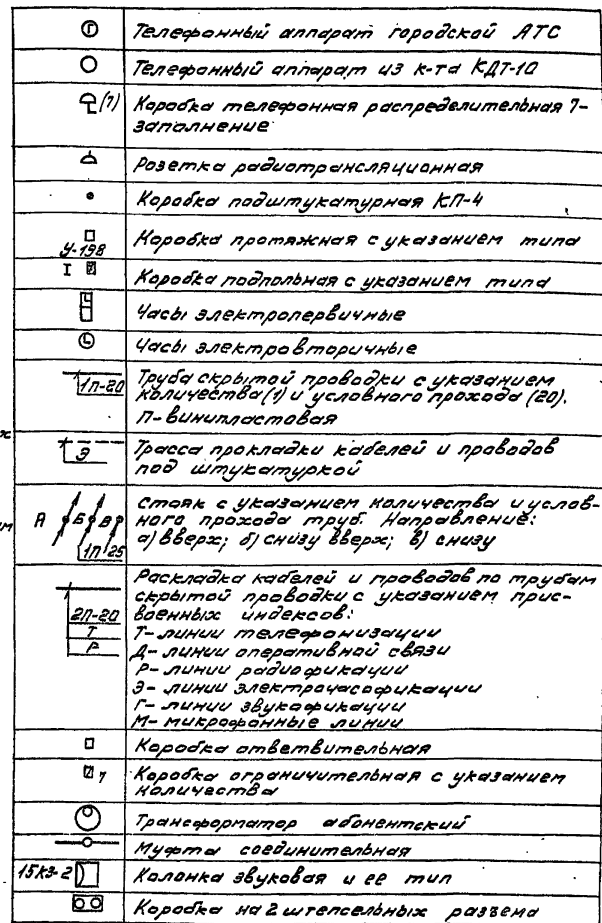 Г Телефонный аппарат городской АТС
Телефонный аппарат из к-та КДТ-10
(7) Коробка телефонная распределительная 7-
заполнение
Розетка радиотрансляционная
Коробка подштукатурная КП-4
У-198 Коробка протяжная с указанием типа
I Коробка подпольная с указанием типа
Часы электропервичные
Часы электровторичные
1п-20 Труба скрытой проводки с указанием
количества (1) и условного прохода (20).
П-винипластовая
Э Трасса прокладки кабелей и проводов
под штукатуркой
А Б В 1п 25 Стояк с указанием количества и услов-
ного прохода труб. Направление:
а) вверх; б) снизу вверх; в) снизу
2п-20 Т Р Раскладка кабелей и проводов по трубам
скрытой проводки с указанием прис-
военных индексов:
Т- линии телефонизации
Д- линии оперативной связи
Р- линии радиофикации
Э- линии электрочасофикации
Г- линии звукофикации
М- микрофонные линии
Коробка ответвительная
7 Коробка ограничительная с указанием
количества
Трансформатор абонентский
Муфта соединительная
15КЗ-2 Колонка звуковая и ее тип
Коробка на 2 штепсельных разъема